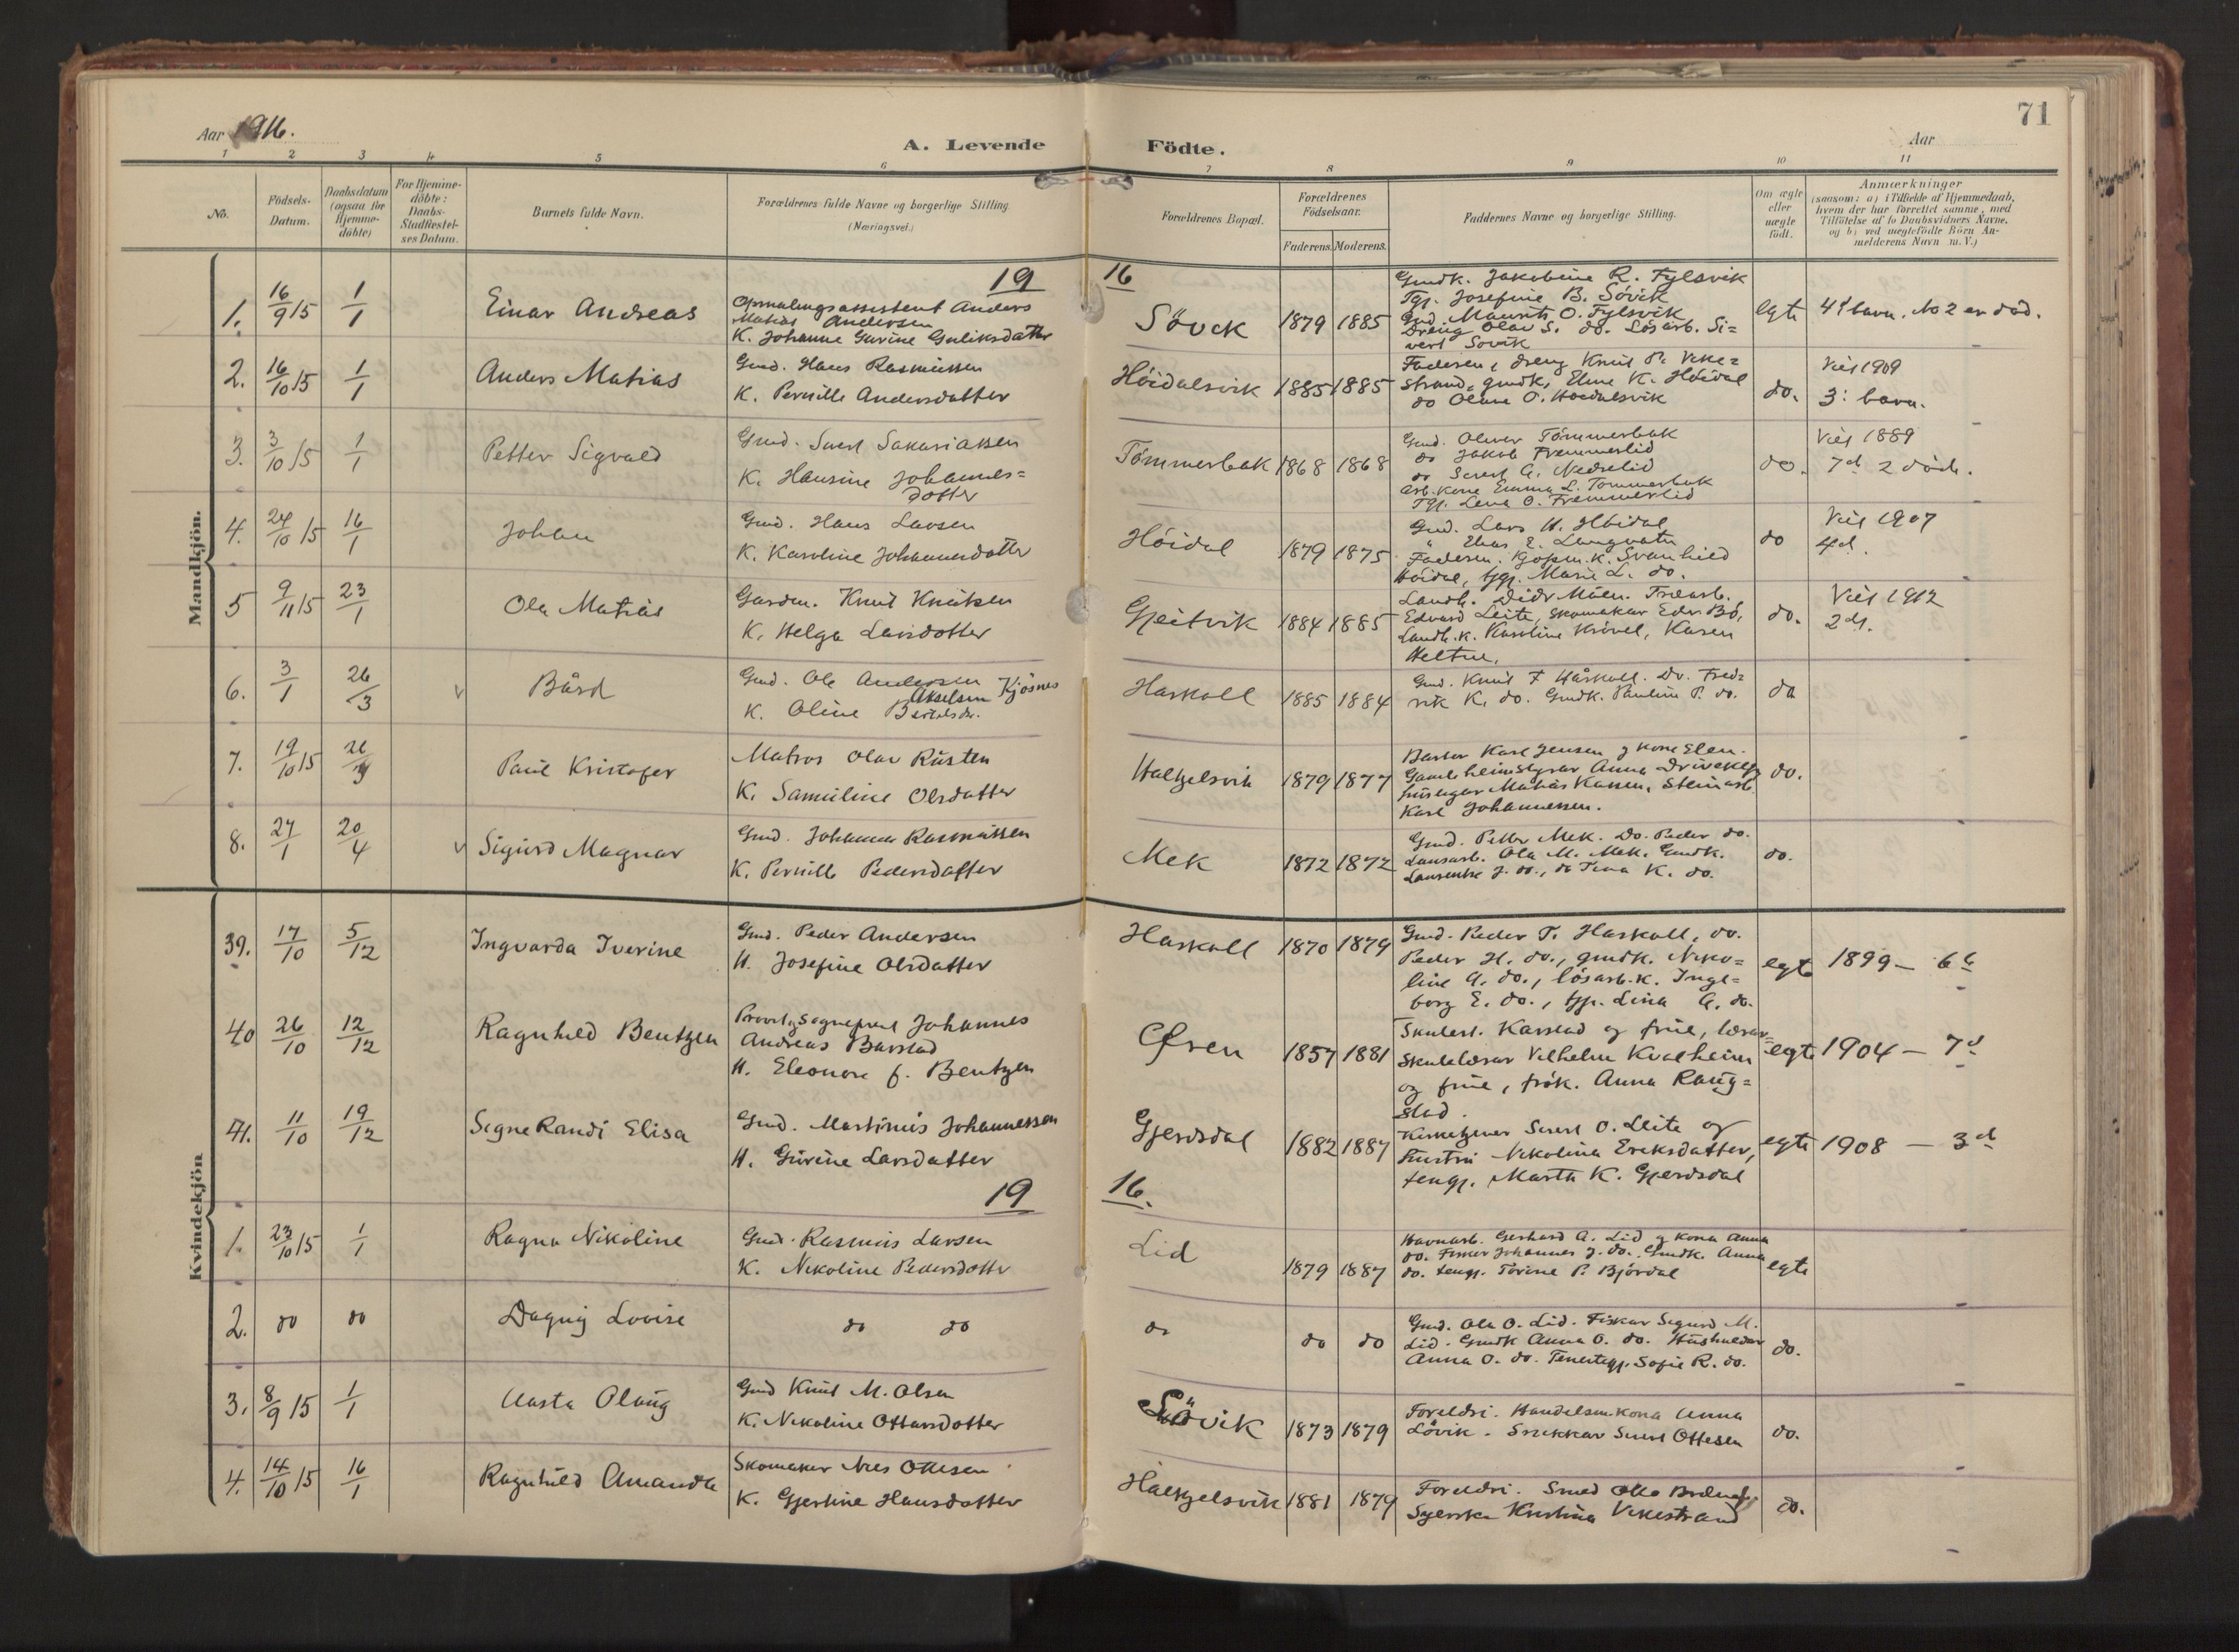 71
Aar 1916.
A. Levende Födte.
Aar
1 2 3 4 5 6 7 8 9 10 11
No.
Födsels-Datum.
Daabsdatum (ogsaa for Hjemme-döbte)
For Hjemme-döbte: Daabs-Stadfæstel-ses Datum.
Barnets fulde Navn.
Forældrenes fulde Navne og borgerlige Stilling (Næringsvei.)
Forældrenes Bopæl.
Forældrenes Födselsaar.
Faderens. Moderens.
Faddernes Navne og borgerlige Stilling.
Om ægte eller uægte födt.
Anmærkninger
(saasom: a) i Tilfælde af Hjemmedaab, hvem der har forrettet samme, med Tilföielse af to Daabsvidners Navne, og b) ved uægtefödte Börn An-melderens Navn m. V.)
Mandkjön.
19 16
1. 16/9 15 1/1 Einar Andreas
Opmalingsassistent Anders
Matias Andersen
K. Johanne Gurine Guliksdatter
Sövik 1879 1885
Gmdk. Jakobine R. Fylsvik
Tgj. Josefine B. Sövik
Gmd. Maurits O. Fylsvik
Dreng Olav S. do. Lösarb. Si=
vert Sövik
egte 4d barn. No 2 er död.
2. 16/10 15 1/1 Anders Matias
Gmd. Hans Rasmussen
K. Pernille Andersdatter
Höidalsvik 1885 1885
Faderen, dreng Knut P. Vike=
strand, gmdk. Eline K. Höidal
do Oline O. Höidalsvik
do.
Viet 1909
3: barn.
3. 3/10 15 1/1 Petter Sigvald
Gmd. Sivert Sakariassen
K. Hansine Johannes=
dotter
Tömmerbak 1868 1868
Gmd. Oliver Tömmerbak
do Jakob Fremmerlid
do Sivert A. Nedrelid
Arb. kone Emma L. Tömmerbak
Tgj. Lena O. Fremmerlid
do.
Viet 1889
7d 2 döde.
4. 24/10 15 16/1 Johan
Gmd. Hans Larsen
K. Karoline Johannesdotter
Höidal 1879 1875
Gmd. Lars H. Höidal
" Elias E. Langvatn
Faderen. Kjöpm. k. Svanhild
Höidal, tgj. Marie L. do.
do
Viet 1907
4d.
5 9/11 15 23/1 Ola Matias
Gardm. Knut Knutsen
K. Helga Larsdotter
Gjeitvik 1884 1885
Edvard Leite, skomakar Edv. Bö,
Landh. k. Karoline Krövel, Karen
Heltne.
do.
Viet 1912
2d.
6. 3/1 26/3 v Bård
Gmd. Ole Andersen
Akselsen Kjösnes
K. Oline Bertelsdtr.
Haskoll 1885 1884
Gmd. Knut F Håskoll. Do. Fred=
rik K. do. Gmdk. Pauline P. do.
do
7. 19/10 15 26/3 Paul Kristofer
Matros Olav Rusten
K. Samuline Olsdatter
Halkjelsvik 1879 1877
Barber Karl Jensen g kone Elen.
Gamleheimstyrar Anna
Matias Kassen. Steinarb.
Karl Johannessen.
do.
8. 27/1 20/4 v Sigurd Magnar
Gmd. Johannes Rasmussen
K. Pernille Pedersdatter
Mek 1872 1872
Gmd. Petter Mek. Do. Peder do.
Lausarb. Ola M. Mek. Gmdk.
Lausentse J. do., do Tina K. do.
do.
Kvindekjön
39. 17/10 5/12 Ingvarda Iverine
Gmd. Peder Andersen
H. Josefine Olsdatter
Haskoll 1870 1879
Gmd. Peder T. Haskoll, do.
Peder H. do., gmdk. Niko=
line A. do., lösarb. k. Inge=
borg E. do., tgj. Lina A. do.
egte 1899 — 6d
40 26/10 12/12 Ragnhild Bentzen
Provst g Sogneprest Johannes
Andreas Barstad
H. Eleonore f. Bentzen
Øren 1857 1881
Skulest. Karstad og frue, lærar=
skulelærar Vilhelm Kvalheim
og frue, frök. Anna Raug=
stad.
egte 1904 — 7d
41. 11/10 19/12 Signe Randi Elisa
Gmd. Martinus Johannessen
H. Gurine Larsdatter
Gjerdsdal 1882 1887
Kirketjener Sivert O. Leite og
hustru Nikolina Eriksdatter,
tengj. Marta K. Gjerdsdal
egte 1908 — 3d
19 16.
1. 23/10 15 1/1 Ragna Nikoline
Gmd. Rasmus Larsen
K. Nikoline Pedersdotter
Lid 1879 1887
Havnarb. Gerhard A. Lid g kona Anna
do. Fisker Johannes J. do. Gmdk. Anna
do. tengj. Torine P. Björdal
egte
2. do do Dagny Lovise
do do
do do do
Gmd. Ola O. Lid. Fiskar Sigurd M.
Lid. Gmdk Anna O. do. Husholdar
Anna O. do. Tenestegj. Sofie R. do.
do.
3. 8/9 15 1/1 Aasta Olaug
Gmd Knut M. Olsen
K. Nikoline Ottarsdotter
Lövik 1873 1879
Foreldri. Handelsm.kona Anna
Lövik. Snikkar Sivert Ottesen
do.
4. 14/10 15 16/1 Ragnhild Amanda
Skomaker Nils Ottesen
K. Gjertine Hansdotter
Halkjelsvik 1881 1879
Foreldri. Smed Otto
Syerske Kristina Vikestrand
do.